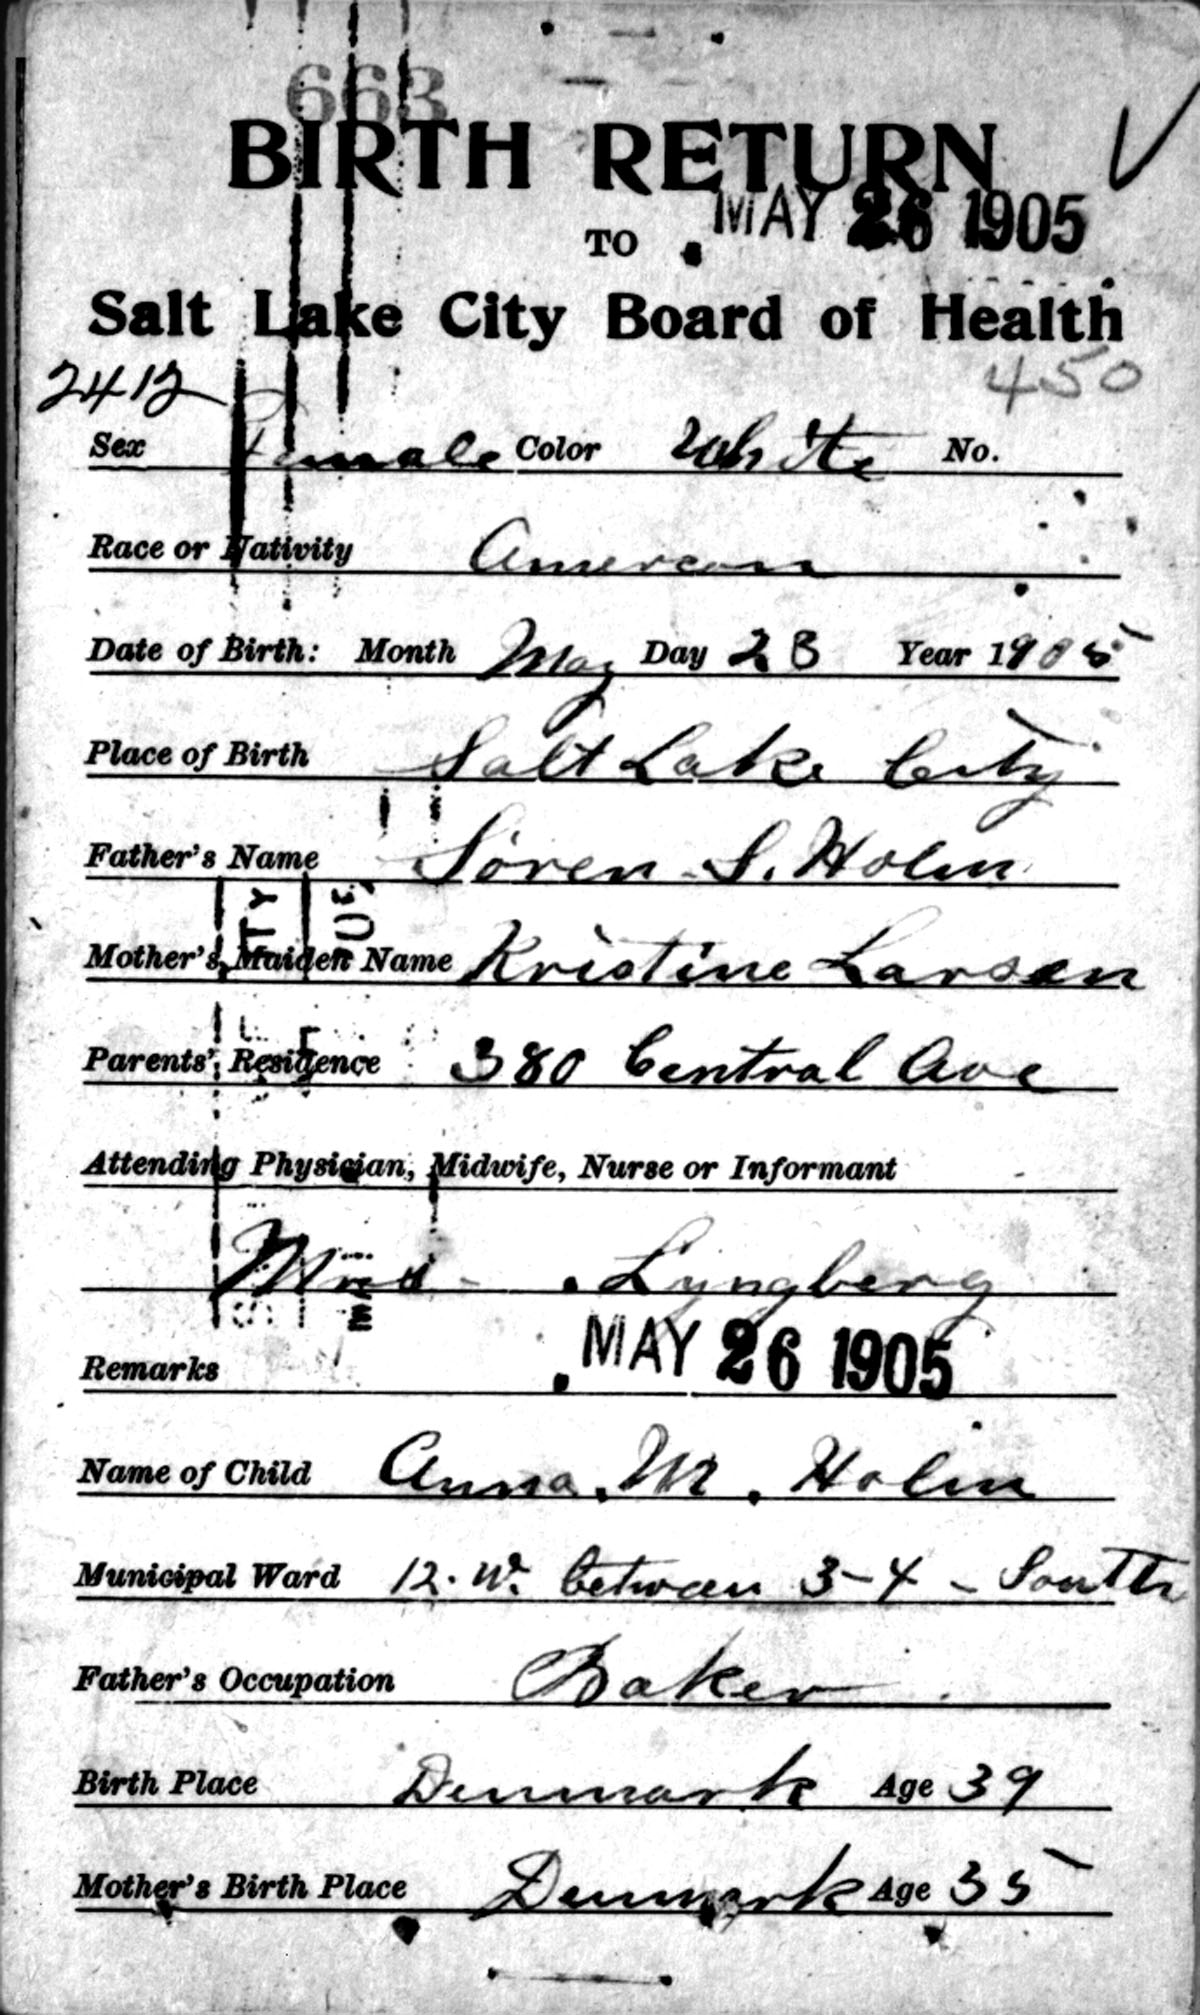 663
BIRTH RETURN
TO MAY 26 1905
Salt Lake City Board of Health
2412 450
Sex Female Color White No.
Race or Nativity American
Date of Birth: Month May Day 23 Year 1905
Place of Birth Salt Lake City
Father's Name Sören S. Holm
Mother's Maiden Name Kristine Larsen
Parents' Residence 380 Central Ave
Attending Physician, Midwife, Nurse or Informant
Mrs. Lyngberg
Remarks MAY 26 1905
Name of Child Anna. M. Holm
Municipal Ward 12. W. between 3-4 - South
Father's Occupation Baker
Birth Place Denmark Age 39
Mother's Birth Place Denmark Age 35